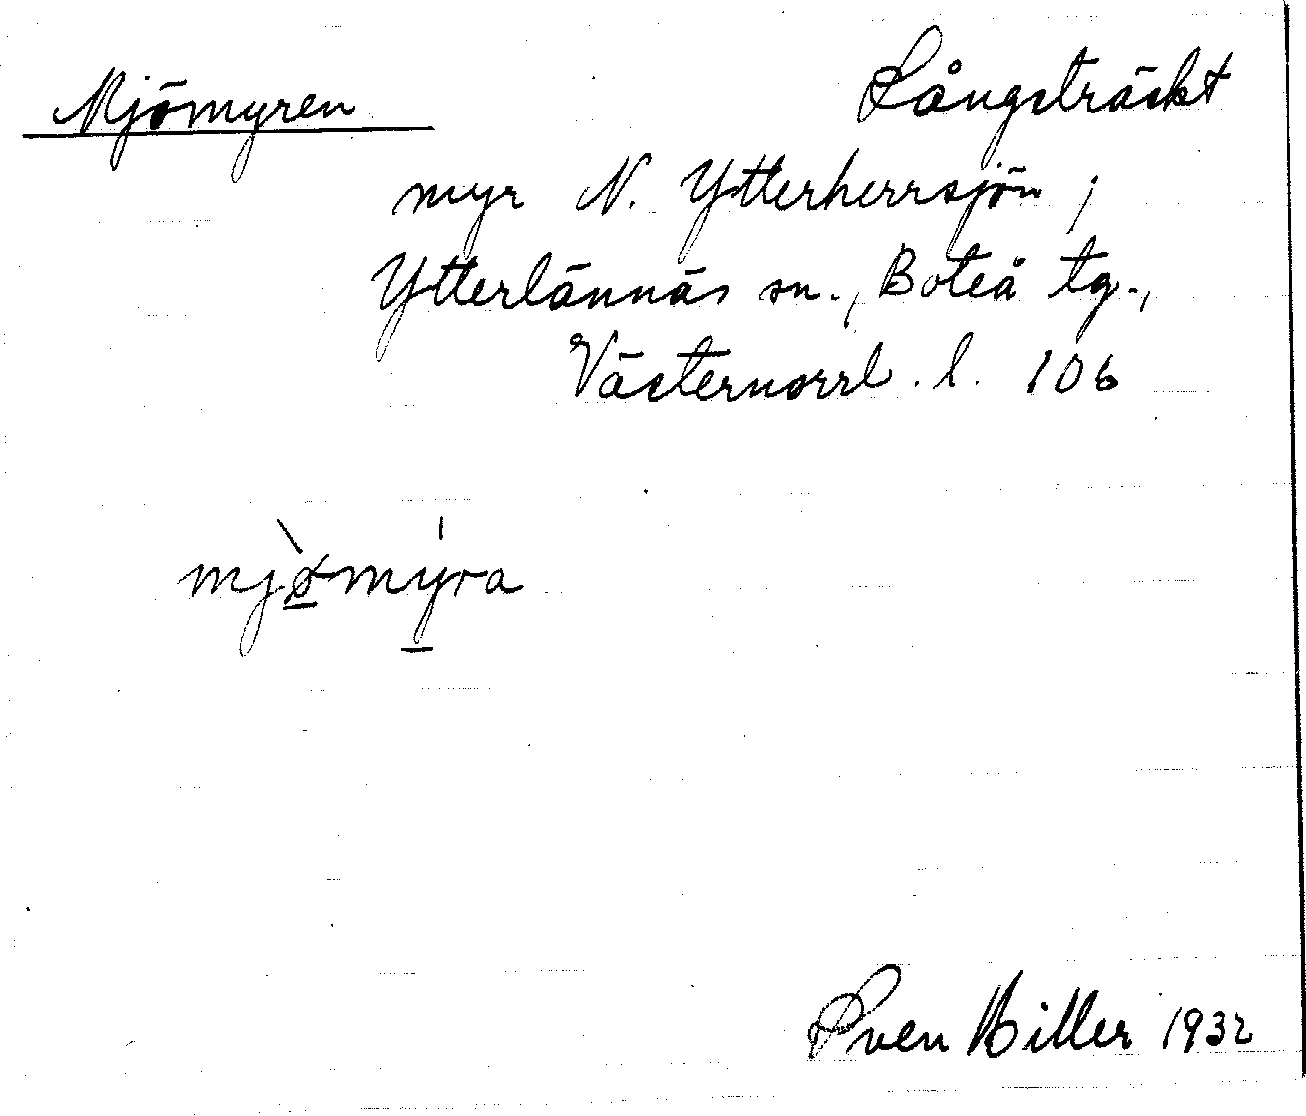 Mjömyren Långsträckt
myr N. Ytterherrsjön,
Ytterlännäs sn., Boteå tg.,
Västernorrl. l. 106
mjø̠̀my̠̍ra
Sven Hiller 1932